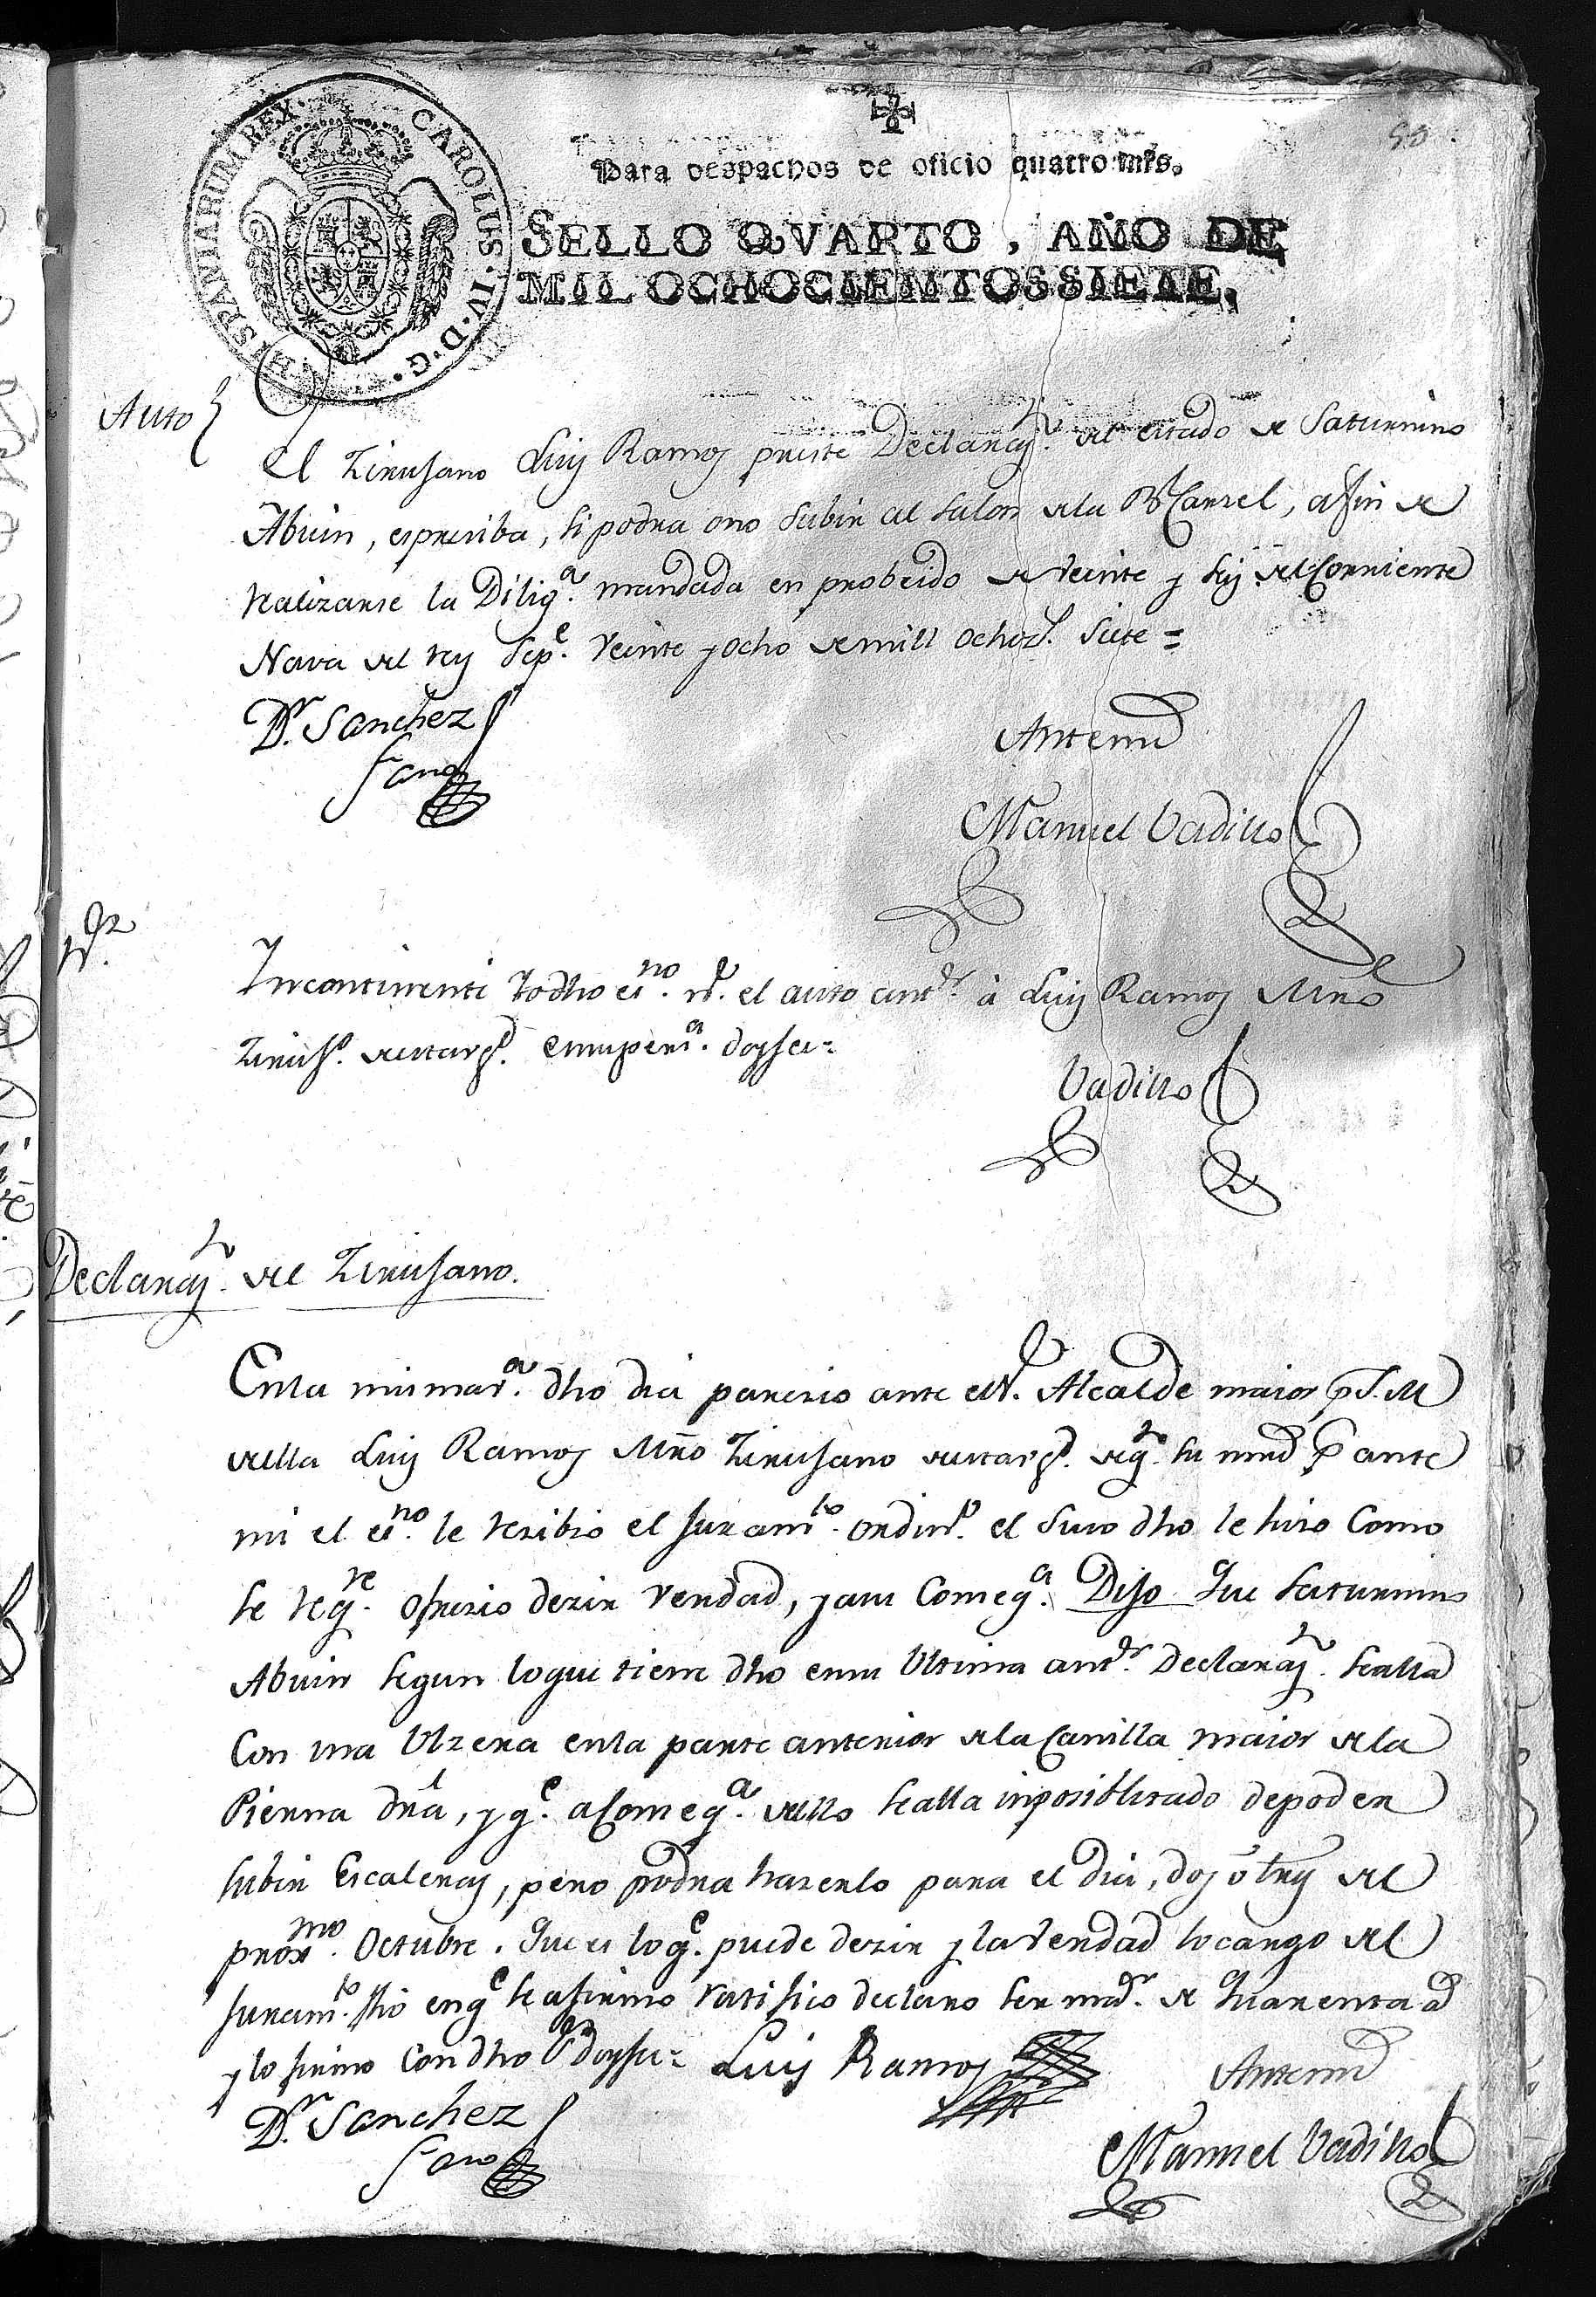 HISPANIARUM REX. CAROLUS. IV. D. G.
Para despachos de oficio quatro mrs.
SELLO QVARTO, AÑO DE
MIL OCHOCIENTOS SIETE,
Auto
El Zirujano Luis Ramos preste Declaraⁿ. del estado de Saturnino
Abuin, espresiba, si podra ono subir al salon dela Rˡ Carzel, afin de
realizarse la Diligᵃ. mandada en probeido de veinte y seis del Corriente
Nava del rey Sepᵉ. veinte y ocho de mill ochozˢ. Siete =
Dʳ. Sanchez
Antemi
Manuel Vadillo
Incontinenti Yo dho esⁿᵒ. el auto antʳ. à Luis Ramos Mrõ
Zirujº. enupersᵃ. doyfee =
Vadillo
Declaraⁿ. del Zirujano.
Enla misma vᵃ. dho dia parezio ante el Sʳ. Alcalde maior p S. M
della Luis Ramos Mrõ Zirujano de qⁿ. su mrd p ante
mi el esⁿᵒ. le rezibio el juramᵗᵒ. ordinº. el suso dho le hizo Como
se reqʳᵉ. ofrezio dezir verdad, y asu Conseqᵃ. Dijo Que Saturnino
Abuin segun loque tiene dho ensu Ultima antʳ. Declaraⁿ. sealla
Con una Ulzera enla parte anterior dela Canilla maior dela
Pierna dra, y qᵉ. aConseqᵃ. dello sealla inposiblitado depoder
subir Escaleras, pero podra hazerlo para el dia, dos ó tres del
proxᵐᵒ. Octubre. Que es loqᵉ. puede dezir y la verdad socargo del
juramᵗᵒ. fho enqᵉ seafirmo ratifico declaro ser mʳ. de Quarenta aˢ
y lo firmo Con dho Sʳ doyfee = Luis Ramos
Antemi
Dʳ. Sanchez
Manuel Vadillo